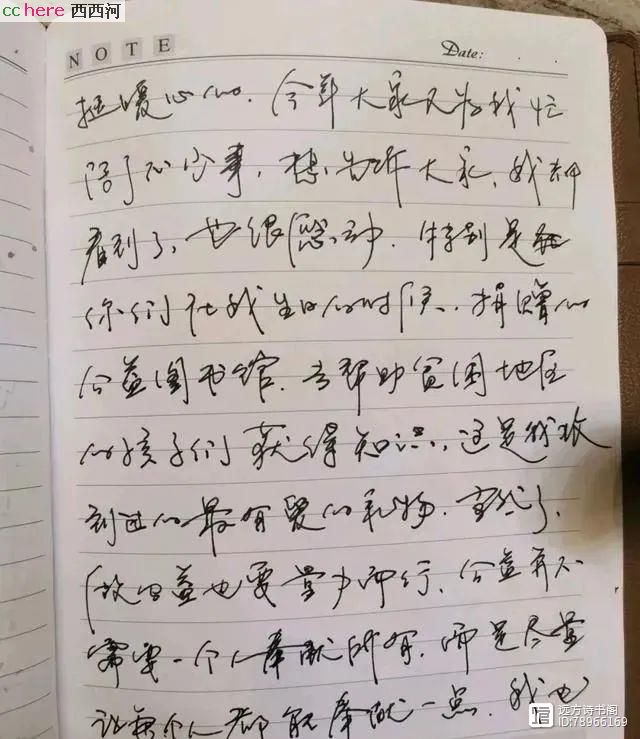 cchere 西西河
NOTE
Date:
挺暖心的.今年大家又为我忙
了不少事,想告诉大家,我都
看到了,也很感动.特别是在
你们在我生日的时候.捐赠的
公益图书馆.去帮助贫困地区
的孩子们获得知识,这是我收
到过的最有爱的礼物.当然了,
做公益也要量力而行,公益并不
需要一个人奉献所有,而是尽量
让每个人都能奉献一点.我也
远方诗书阁
ID:78966169